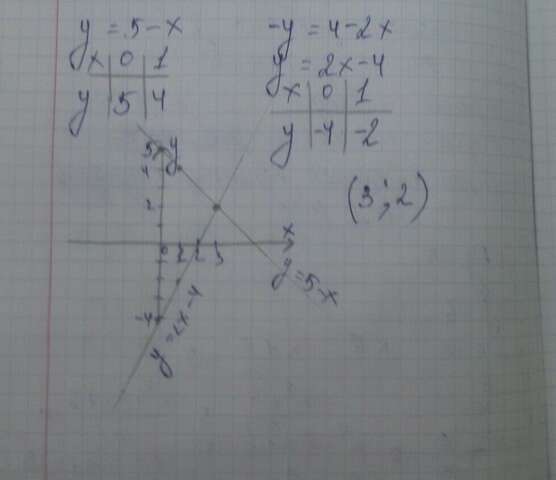 y = 5 - x
x | 0 | 1
y | 5 | 4
-y = 4 - 2x
y = 2x - 4
x | 0 | 1
y | -4 | -2
(3; 2)
5 y
4
2
x
0 1 2 3
-4
y = 5 - x
y = 2x - 4